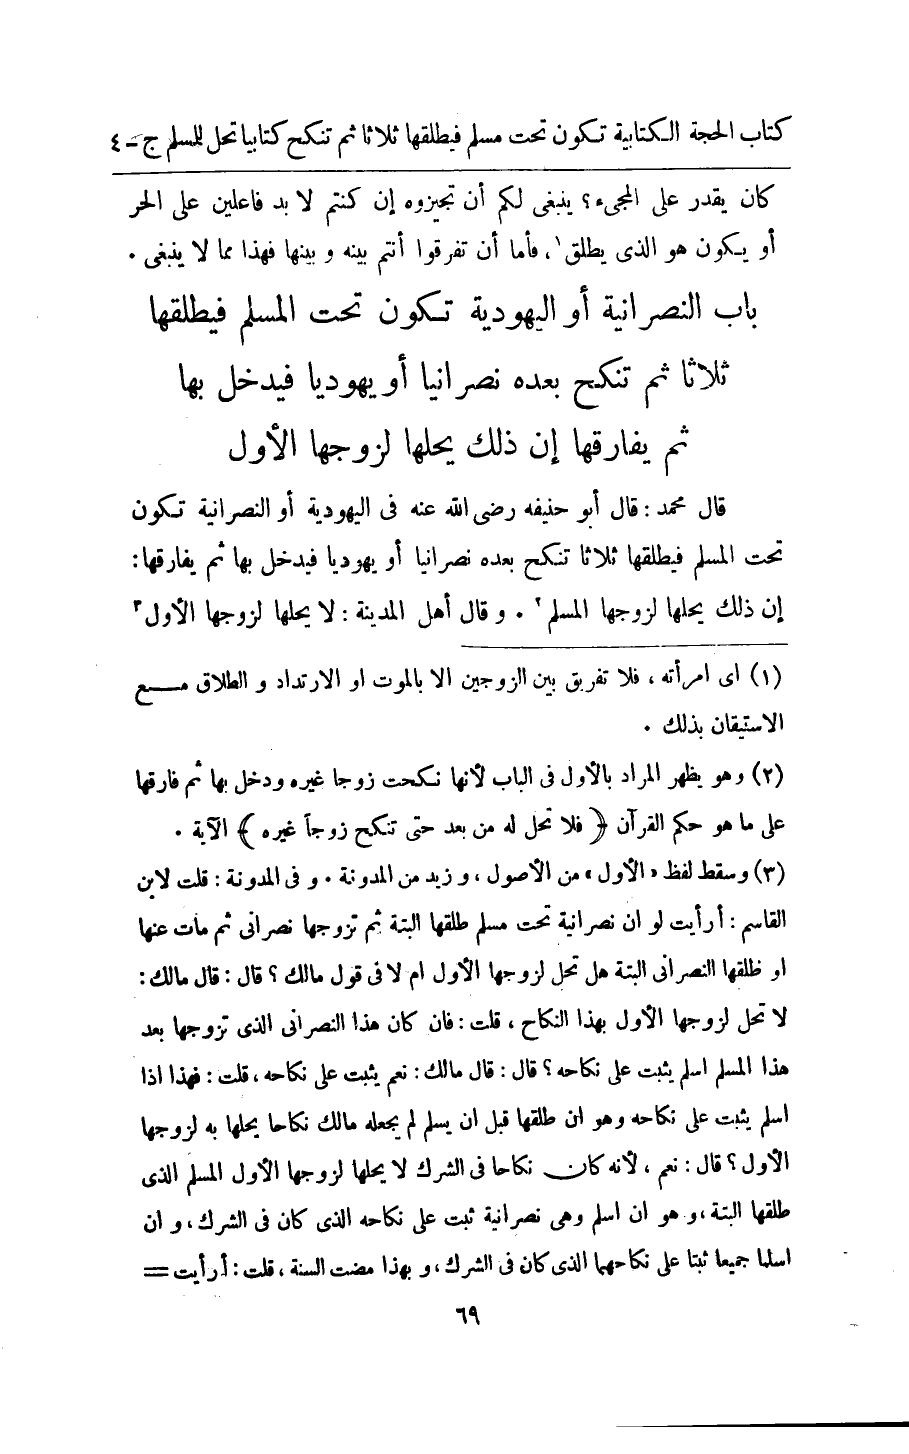 كتاب الحجة الكتابية تكون تحت مسلم فيطلقها ثلاثا ثم تنكح كتابيا تحل للمسلم ج - ٤
كان يقدر على المجىء؟ ينبغى لكم أن تجيزوه إن كنتم لا بد فاعلين على الحر
أو يكون هو الذى يطلق١، فأما أن تفرقوا أنتم بينه و بينها فهذا مما لا ينبغى .
باب النصرانية أو اليهودية تكون تحت المسلم فيطلقها
ثلاثا ثم تنكح بعده نصرانيا أو يهوديا فيدخل بها
ثم يفارقها إن ذلك يحلها لزوجها الأول
قال محمد : قال أبو حنيفه رضى الله عنه فى اليهودية أو النصرانية تكون
تحت المسلم فيطلقها ثلاثا تنكح بعده نصرانيا أو يهوديا فيدخل بها ثم يفارقها :
إن ذلك يحلها لزوجها المسلم٢ . و قال أهل المدينة : لا يحلها لزوجها الأول٣
(١) اى امرأته ، فلا تفريق بين الزوجين الا بالموت او الارتداد و الطلاق مع
الاستيقان بذلك .
(٢) وهو يظهر المراد بالأول فى الباب لأنها نكحت زوجا غيره ودخل بها ثم فارقها
على ما هو حكم القرآن ﴿ فلا تحل له من بعد حتى تنكح زوجاً غيره ﴾ الآية .
(٣) وسقط لفظ «الأول» من الأصول ، و زيد من المدونة . و فى المدونة : قلت لابن
القاسم : أرأيت لو ان نصرانية تحت مسلم طلقها البتة ثم تزوجها نصرانى ثم مات عنها
او طلقها النصرانى البتة هل تحل لزوجها الأول ام لا فى قول مالك ؟ قال : قال مالك :
لا تحل لزوجها الأول بهذا النكاح ، قلت : فان كان هذا النصرانى الذى تزوجها بعد
هذا المسلم اسلم يثبت على نكاحه ؟ قال : قال مالك : نعم يثبت على نكاحه ، قلت : فهذا اذا
اسلم يثبت على نكاحه وهو ان طلقها قبل ان يسلم لم يجعله مالك نكاحا يحلها به لزوجها
الأول ؟ قال : نعم ، لأنه كان نكاحا فى الشرك لا يحلها لزوجها الأول المسلم الذى
طلقها البتة ، و هو ان اسلم وهى نصرانية ثبت على نكاحه الذى كان فى الشرك ، و ان
اسلما جميعا ثبتا على نكاحهما الذى كان فى الشرك ، و بهذا مضت السنة ، قلت : أرأيت =
٦٩